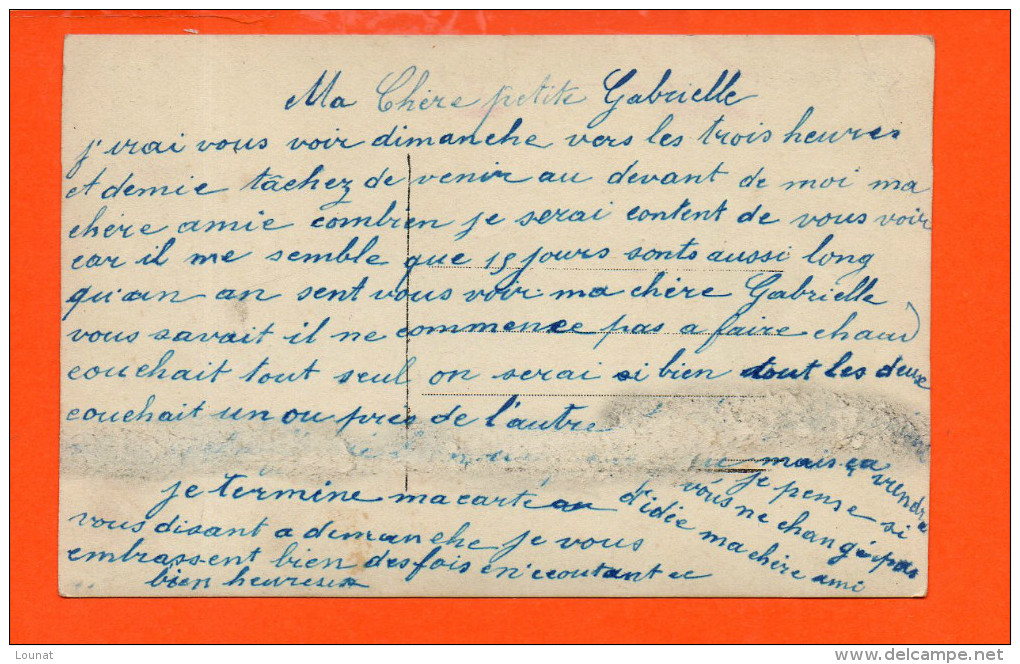 Ma Chère petite Gabrielle
j'irai vous voir dimanche vers les trois heures
et demie tâchez de venir au devant de moi ma
chère amie combien je serai content de vous voir
car il me semble que 15 jours sonts aussi long
qu'un an sent vous voir ma chère Gabrielle
vous savait il ne commence pas a faire chaud
couchait tout seul on serai si bien tout les deux
couchait un ou près de l'autre
mais ça viendra
je pense si
vous ne changé pas
d'idée ma chère ami
je termine ma carte en
vous disant a dimanche je vous
embrassent bien des fois en
bien heureux
Lounat
www.delcampe.net